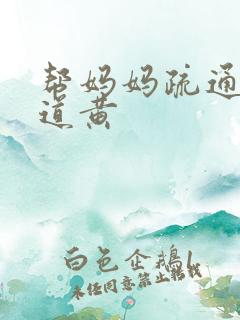 帮妈妈疏通
道黄
白色企鹅1
未经同意禁止转载